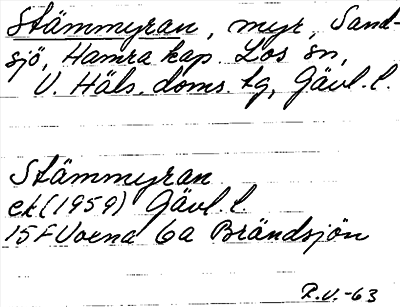 Stämmyran, myr, Sand-
sjö, Hamra kap. Los sn,
V. Häls. doms. tg, Gävl. l.
Stämmyran
ek (1959) Gävl. l.
15F Voxna 6a Brändsjön
R.V.-63